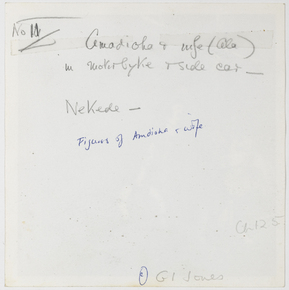 No 11
Amadioha & wife (Ala)
in motorbyke & side car —
Nekede —
Figures of Amdioha & wife
Ch.125
© GI Jones